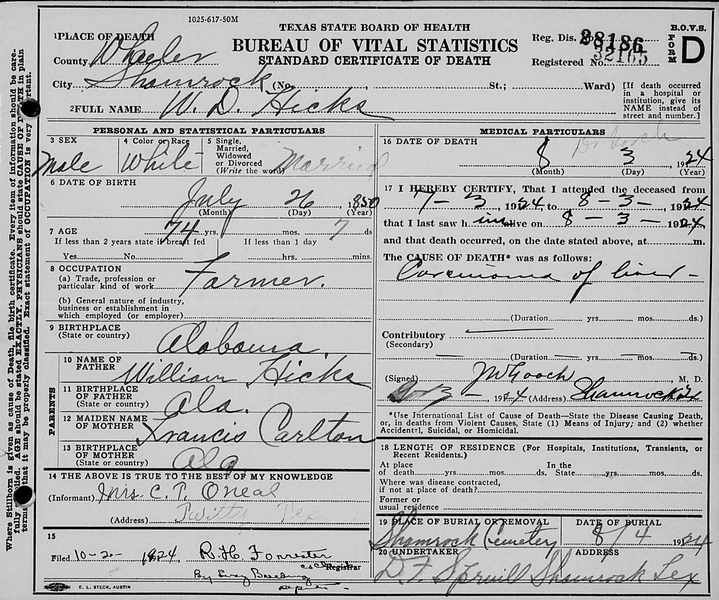 1025-617-50M
TEXAS STATE BOARD OF HEALTH
B.O.V.S.
BUREAU OF VITAL STATISTICS
STANDARD CERTIFICATE OF DEATH
FORM D
Reg. Dis. No. 28186
Registered No. 32165
1 PLACE OF DEATH
County Wheeler
City Shamrock (No. St.; Ward)
[If death occurred in a hospital or institution, give its NAME instead of street and number.]
2 FULL NAME W. D. Hicks
PERSONAL AND STATISTICAL PARTICULARS
3 SEX Male
4 Color or Race White
5 Single, Married, Widowed or Divorced (Write the word) Married
6 DATE OF BIRTH July 26 1850
(Month) (Day) (Year)
7 AGE 74 yrs. mos. 7 ds.
If less than 2 years state if breast fed If less than 1 day
Yes No hrs. min.
8 OCCUPATION
(a) Trade, profession or particular kind of work Farmer.
(b) General nature of industry, business or establishment in which employed (or employer)
9 BIRTHPLACE
(State or country) Alabama
PARENTS
10 NAME OF FATHER William Hicks
11 BIRTHPLACE OF FATHER
(State or country) Ala.
12 MAIDEN NAME OF MOTHER Francis Carlton
13 BIRTHPLACE OF MOTHER
(State or country) Ala
14 THE ABOVE IS TRUE TO THE BEST OF MY KNOWLEDGE
(Informant) Mrs. C. P. Oneal
(Address) Twitty Tex
15
Filed 10-2- 1924 R. H. Forrester
Registrar
By
MEDICAL PARTICULARS
16 DATE OF DEATH
8 3 1924
(Month) (Day) (Year)
17 I HEREBY CERTIFY, That I attended the deceased from
7-3 1924, to 8-3-, 1924
that I last saw him alive on 8-3- 1924
and that death occurred, on the date stated above, at m.
The CAUSE OF DEATH* was as follows:
Carcinoma of liver
(Duration) yrs. mos. ds.
Contributory
(Secondary)
(Duration) yrs. mos. ds.
(Signed) J W Gooch M. D.
1924 (Address) Shamrock Tx
*Use International List of Cause of Death—State the Disease Causing Death,
or, in deaths from Violent Causes, State (1) Means of Injury; and (2) whether
Accidental, Suicidal, or Homicidal.
18 LENGTH OF RESIDENCE (For Hospitals, Institutions, Transients, or
Recent Residents.)
At place of death yrs. mos. ds. In the State yrs. mos. ds.
Where was disease contracted,
if not at place of death?
Former or
usual residence
19 PLACE OF BURIAL OR REMOVAL DATE OF BURIAL
Shamrock Cemetery 8/4 1924
20 UNDERTAKER ADDRESS
D. F. Spruill Shamrock Tex
C. L. STECK, AUSTIN